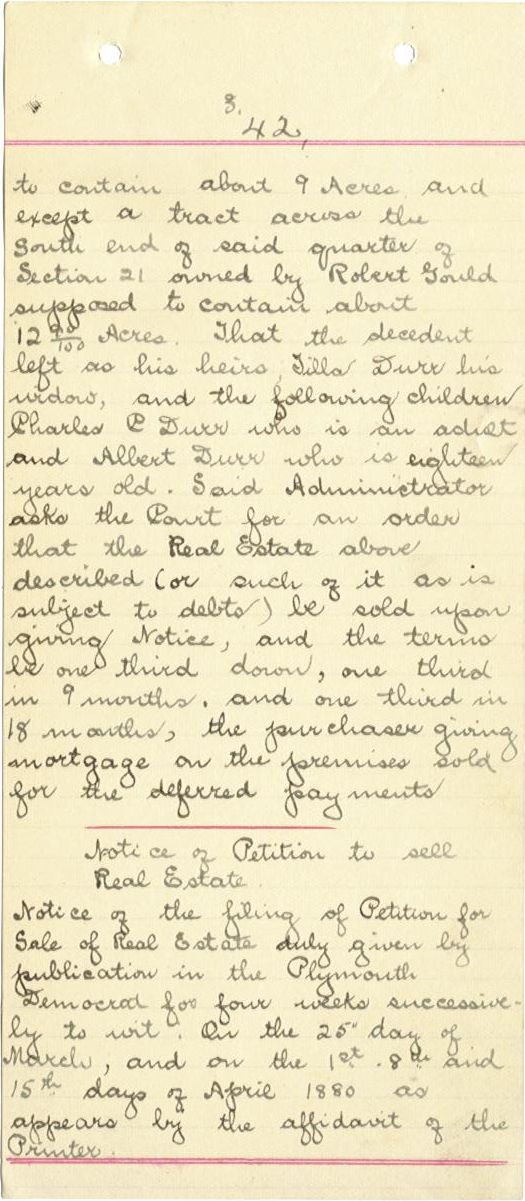 8.
42,
to contain about 9 Acres and
except a tract across the
South end of said quarter of
Section 21 owned by Robert Gould
supposed to contain about
12 90/100 Acres. That the decedent
left as his heirs, Tilla Durr his
widow, and the following children
Charles C Durr who is an adult
and Albert Durr who is eighteen
years old. Said Administrator
asks the Court for an order
that the Real Estate above
described (or such of it as is
subject to debts) be sold upon
giving Notice, and the terms
be one third down, one third
in 9 months, and one third in
18 months, the purchaser giving
mortgage on the premises sold
for the deferred payments
Notice of Petition to sell
Real Estate.
Notice of the filing of Petition for
Sale of Real Estate duly given by
publication in the Plymouth
Democrat for four weeks successive-
ly to wit. On the 25" day of
March, and on the 1st. 8th and
15th days of April 1880 as
appears by the affidavit of the
Printer.